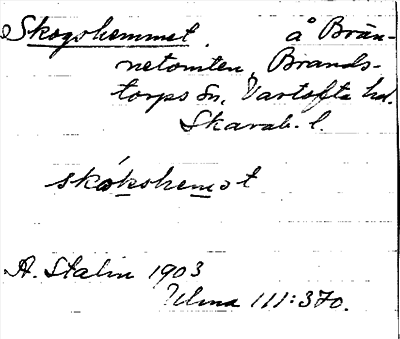 Skogshemmet. å Brän-
netomten, Brands-
torps sn, Vartofta hd.
Skarab. l.
skókshemət
A. Stalin 1903
Ulma 111:370.